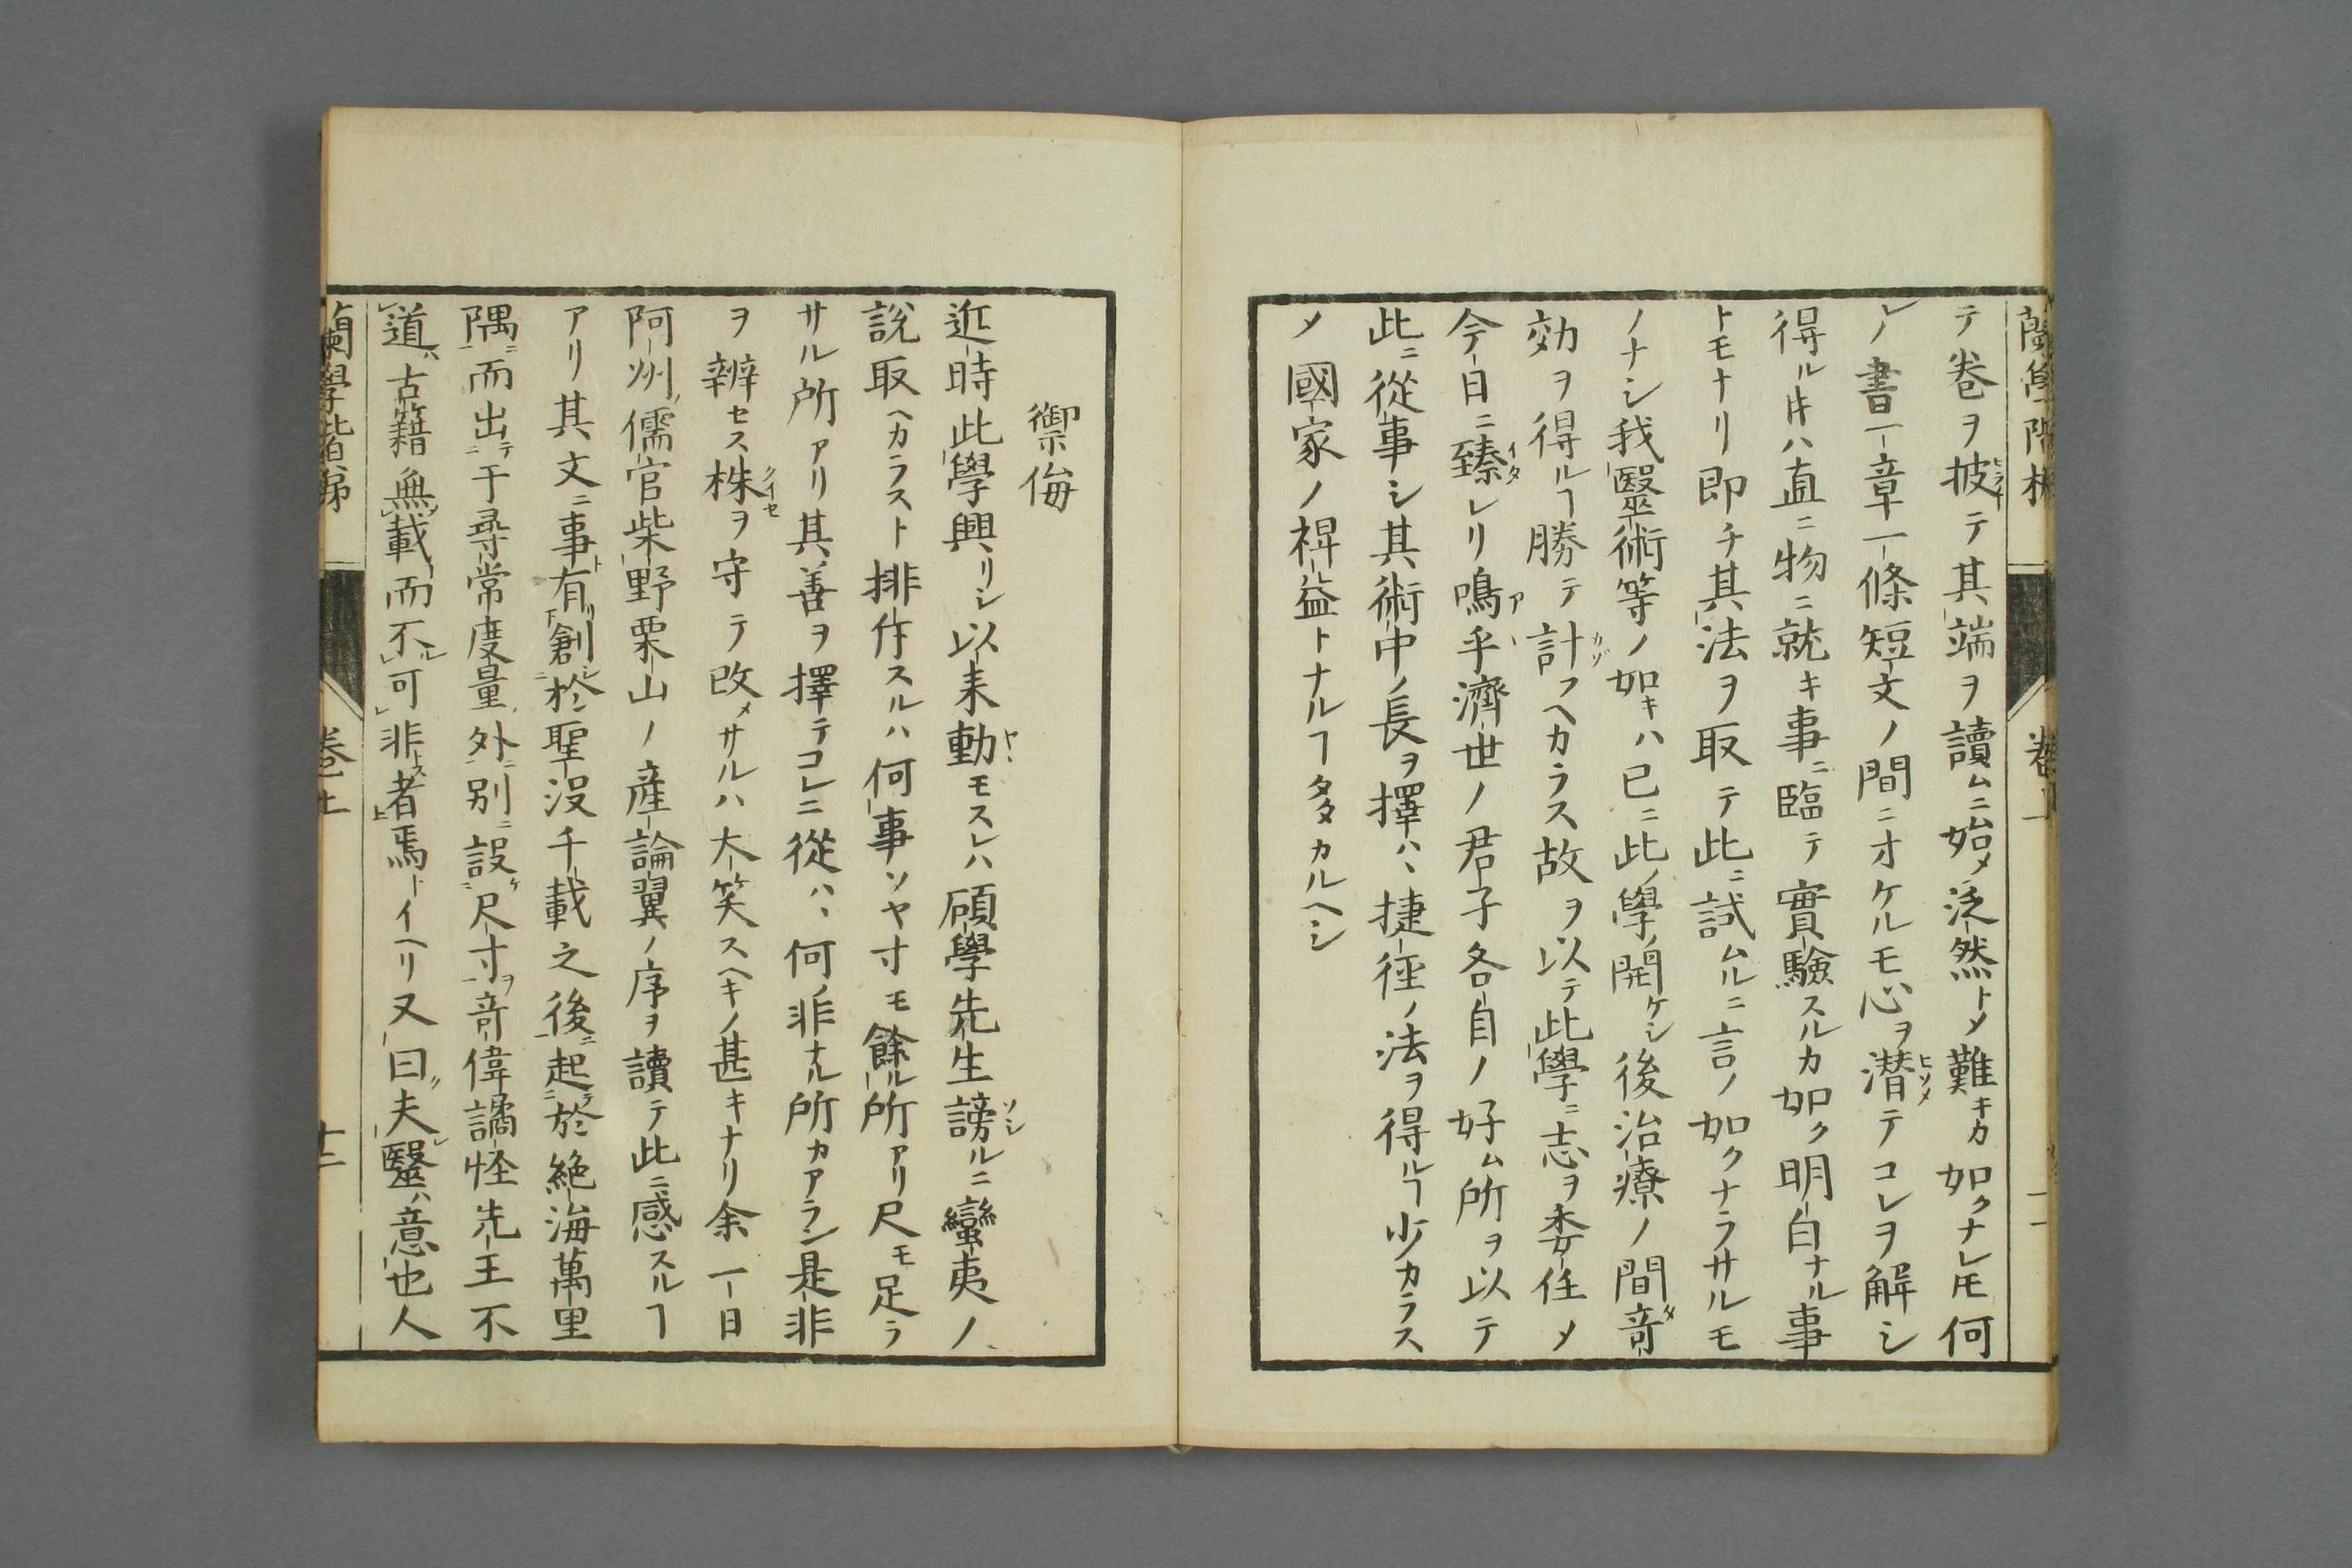 テ巻ヲ披テ其端ヲ讀ムニ始メ泛然トメ難キカ如クナレ𪜈何
レノ書一章一條短文ノ間ニオケルモ心ヲ潜テコレヲ解シ
得ル𪜈ハ直ニ物ニ就キ事ニ臨テ實驗スルカ如ク明白ナル事
トモナリ即チ其法ヲ取テ此ニ試ムルニ言ノ如クナラサルモ
ノナシ我醫術等ノ如キハ已ニ此學開ケシ後治療ノ間竒
効ヲ得ルヿ勝テ計フヘカラス故ヲ以テ此學ニ志ヲ委任メ
今日ニ臻レリ鳴乎濟世ノ君子各自ノ好ム所ヲ以テ
此ニ從事シ其術中ノ長ヲ擇ハヽ捷徑ノ法ヲ得ルヿ少カラス
メ國家ノ裨益トナルヿ多カルヘシ
禦侮
近時此學興リシ以来動モスレハ碩學先生謗ルニ蠻夷ノ
說取ヘカラスト排斥スルハ何事ソヤ寸モ餘ル所アリ尺モ足ラ
サル所アリ其善ヲ擇テコレニ從ハヽ何ノ非ナル所カアラン是非
ヲ辨セス株ヲ守テ改メサルハ大笑スヘキノ甚キナリ余一日
阿州ノ儒官柴野栗山ノ産論翼ノ序ヲ讀テ此ニ感スルヿ
アリ其文ニ事有創於聖没千載之後起於絶海萬里
隅而出于尋常度量外別設尺寸竒偉譎怪先王不
道古籍無載而不可非者焉トイヘリ又曰夫醫ハ意也人
蘭學階梯
巻上
十二